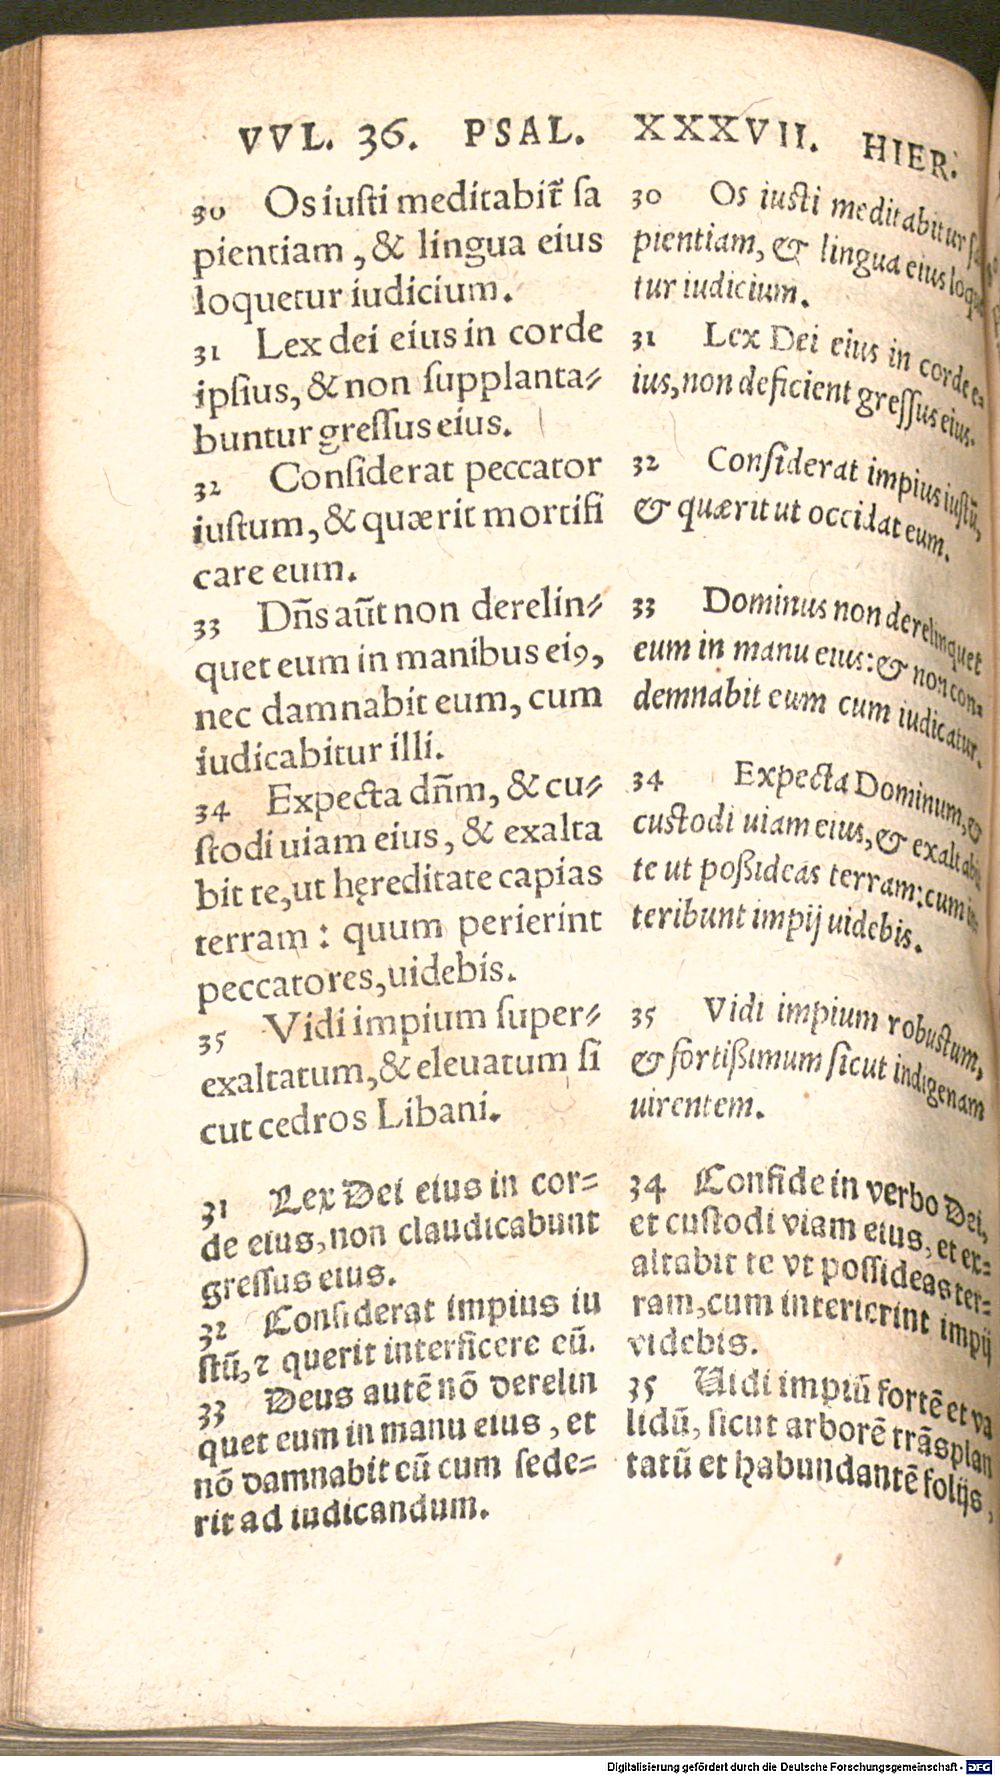 VVL. 36. PSAL. XXXVII. HIER.
30 Os iusti meditabit̃ sa
pientiam, & lingua eius
loquetur iudicium.
31 Lex dei eius in corde
ipsius, & non supplanta⸗
buntur gressus eius.
32 Considerat peccator
iustum, & quærit mortifi
care eum.
33 Dñs aut̃ non derelin⸗
quet eum in manibus ei9,
nec damnabit eum, cum
iudicabitur illi.
34 Expecta dñm, & cu⸗
stodi uiam eius, & exalta
bit te, ut hęreditate capias
terram: quum perierint
peccatores, uidebis.
35 Vidi impium super⸗
exaltatum, & eleuatum si
cut cedros Libani.
30 Os iusti meditabitur
pientiam, & lingua eius
tur iudicium.
31 Lex Dei eius in corde e⸗
ius, non deficient gressus eius.
32 Considerat impius iustũ,
& quærit ut occidat eum.
33 Dominus non derelinquet
eum in manu eius: & non con⸗
demnabit eum cum iudicatur.
34 Expecta Dominum, &
custodi uiam eius, & exaltabit
te ut possideas terram: cum in⸗
teribunt impij uidebis.
35 Vidi impium robustum,
& fortissimum sicut indigenam
uirentem.
31 Lex Dei eius in cor⸗
de eius, non claudicabunt
gressus eius.
32 Considerat impius iu
stũ, ⁊ querit interficere eũ.
33 Deus autẽ nõ derelin
quet eum in manu eius, et
nõ damnabit eũ cum sede⸗
rit ad iudicandum.
34 Confide in verbo Dei,
et custodi viam eius, et ex⸗
altabit te vt possideas ter⸗
ram, cum interierint impij
videbis.
35 Uidi impiũ fortẽ et va
lidũ, sicut arborẽ trãsplan
tatũ et habundantẽ folijs,
Digitalisierung gefördert durch die Deutsche Forschungsgemeinschaft - DFG